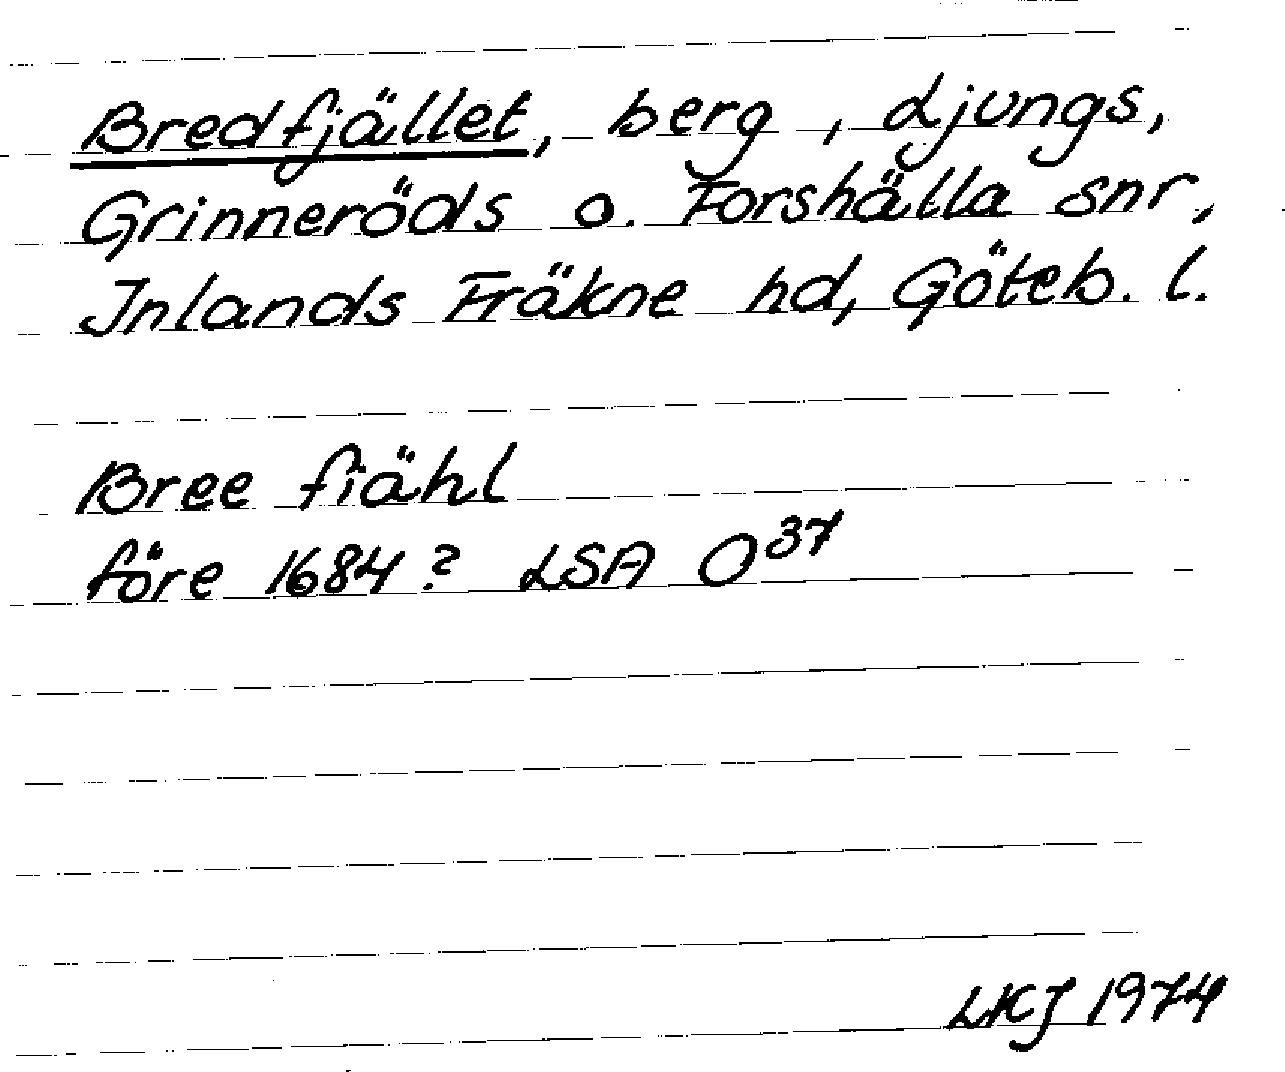 Bredfjället, berg, Ljungs,
Grinneröds o. Forshälla snr,
Inlands Fräkne hd, Göteb. l.
Bree fiähl
före 1684? LSA O37
LKJ 1974